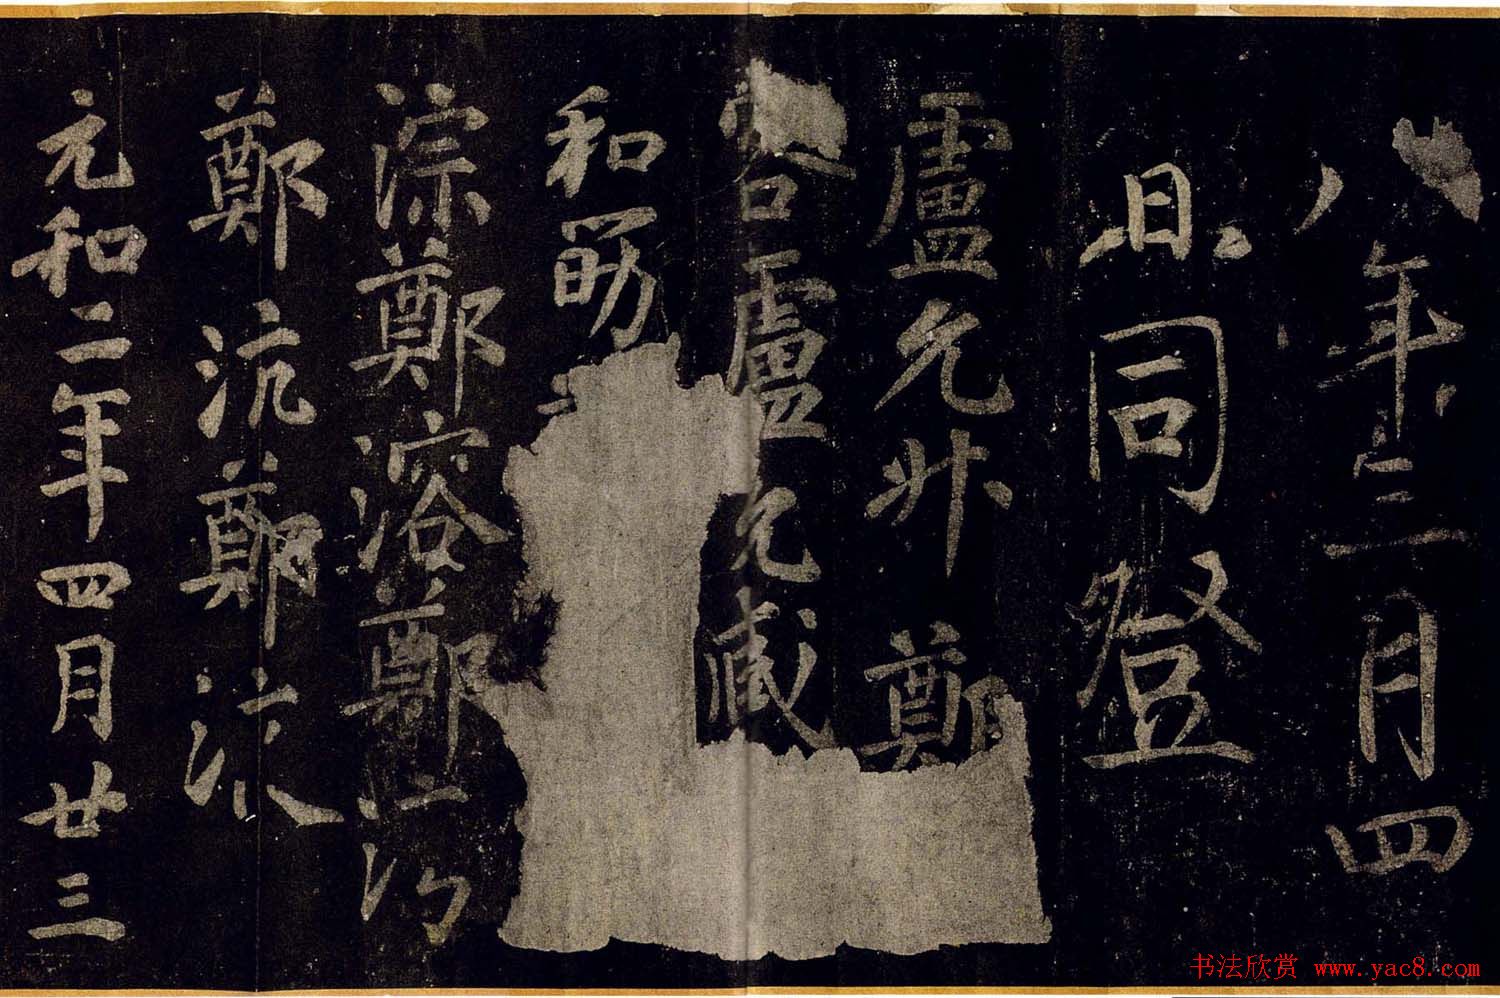 八年三月四
日同登
盧允卅 鄭
容盧允
和
淙鄭溶鄭
鄭沆鄭
元和二年四月廿三
书法欣赏 www.yac8.com